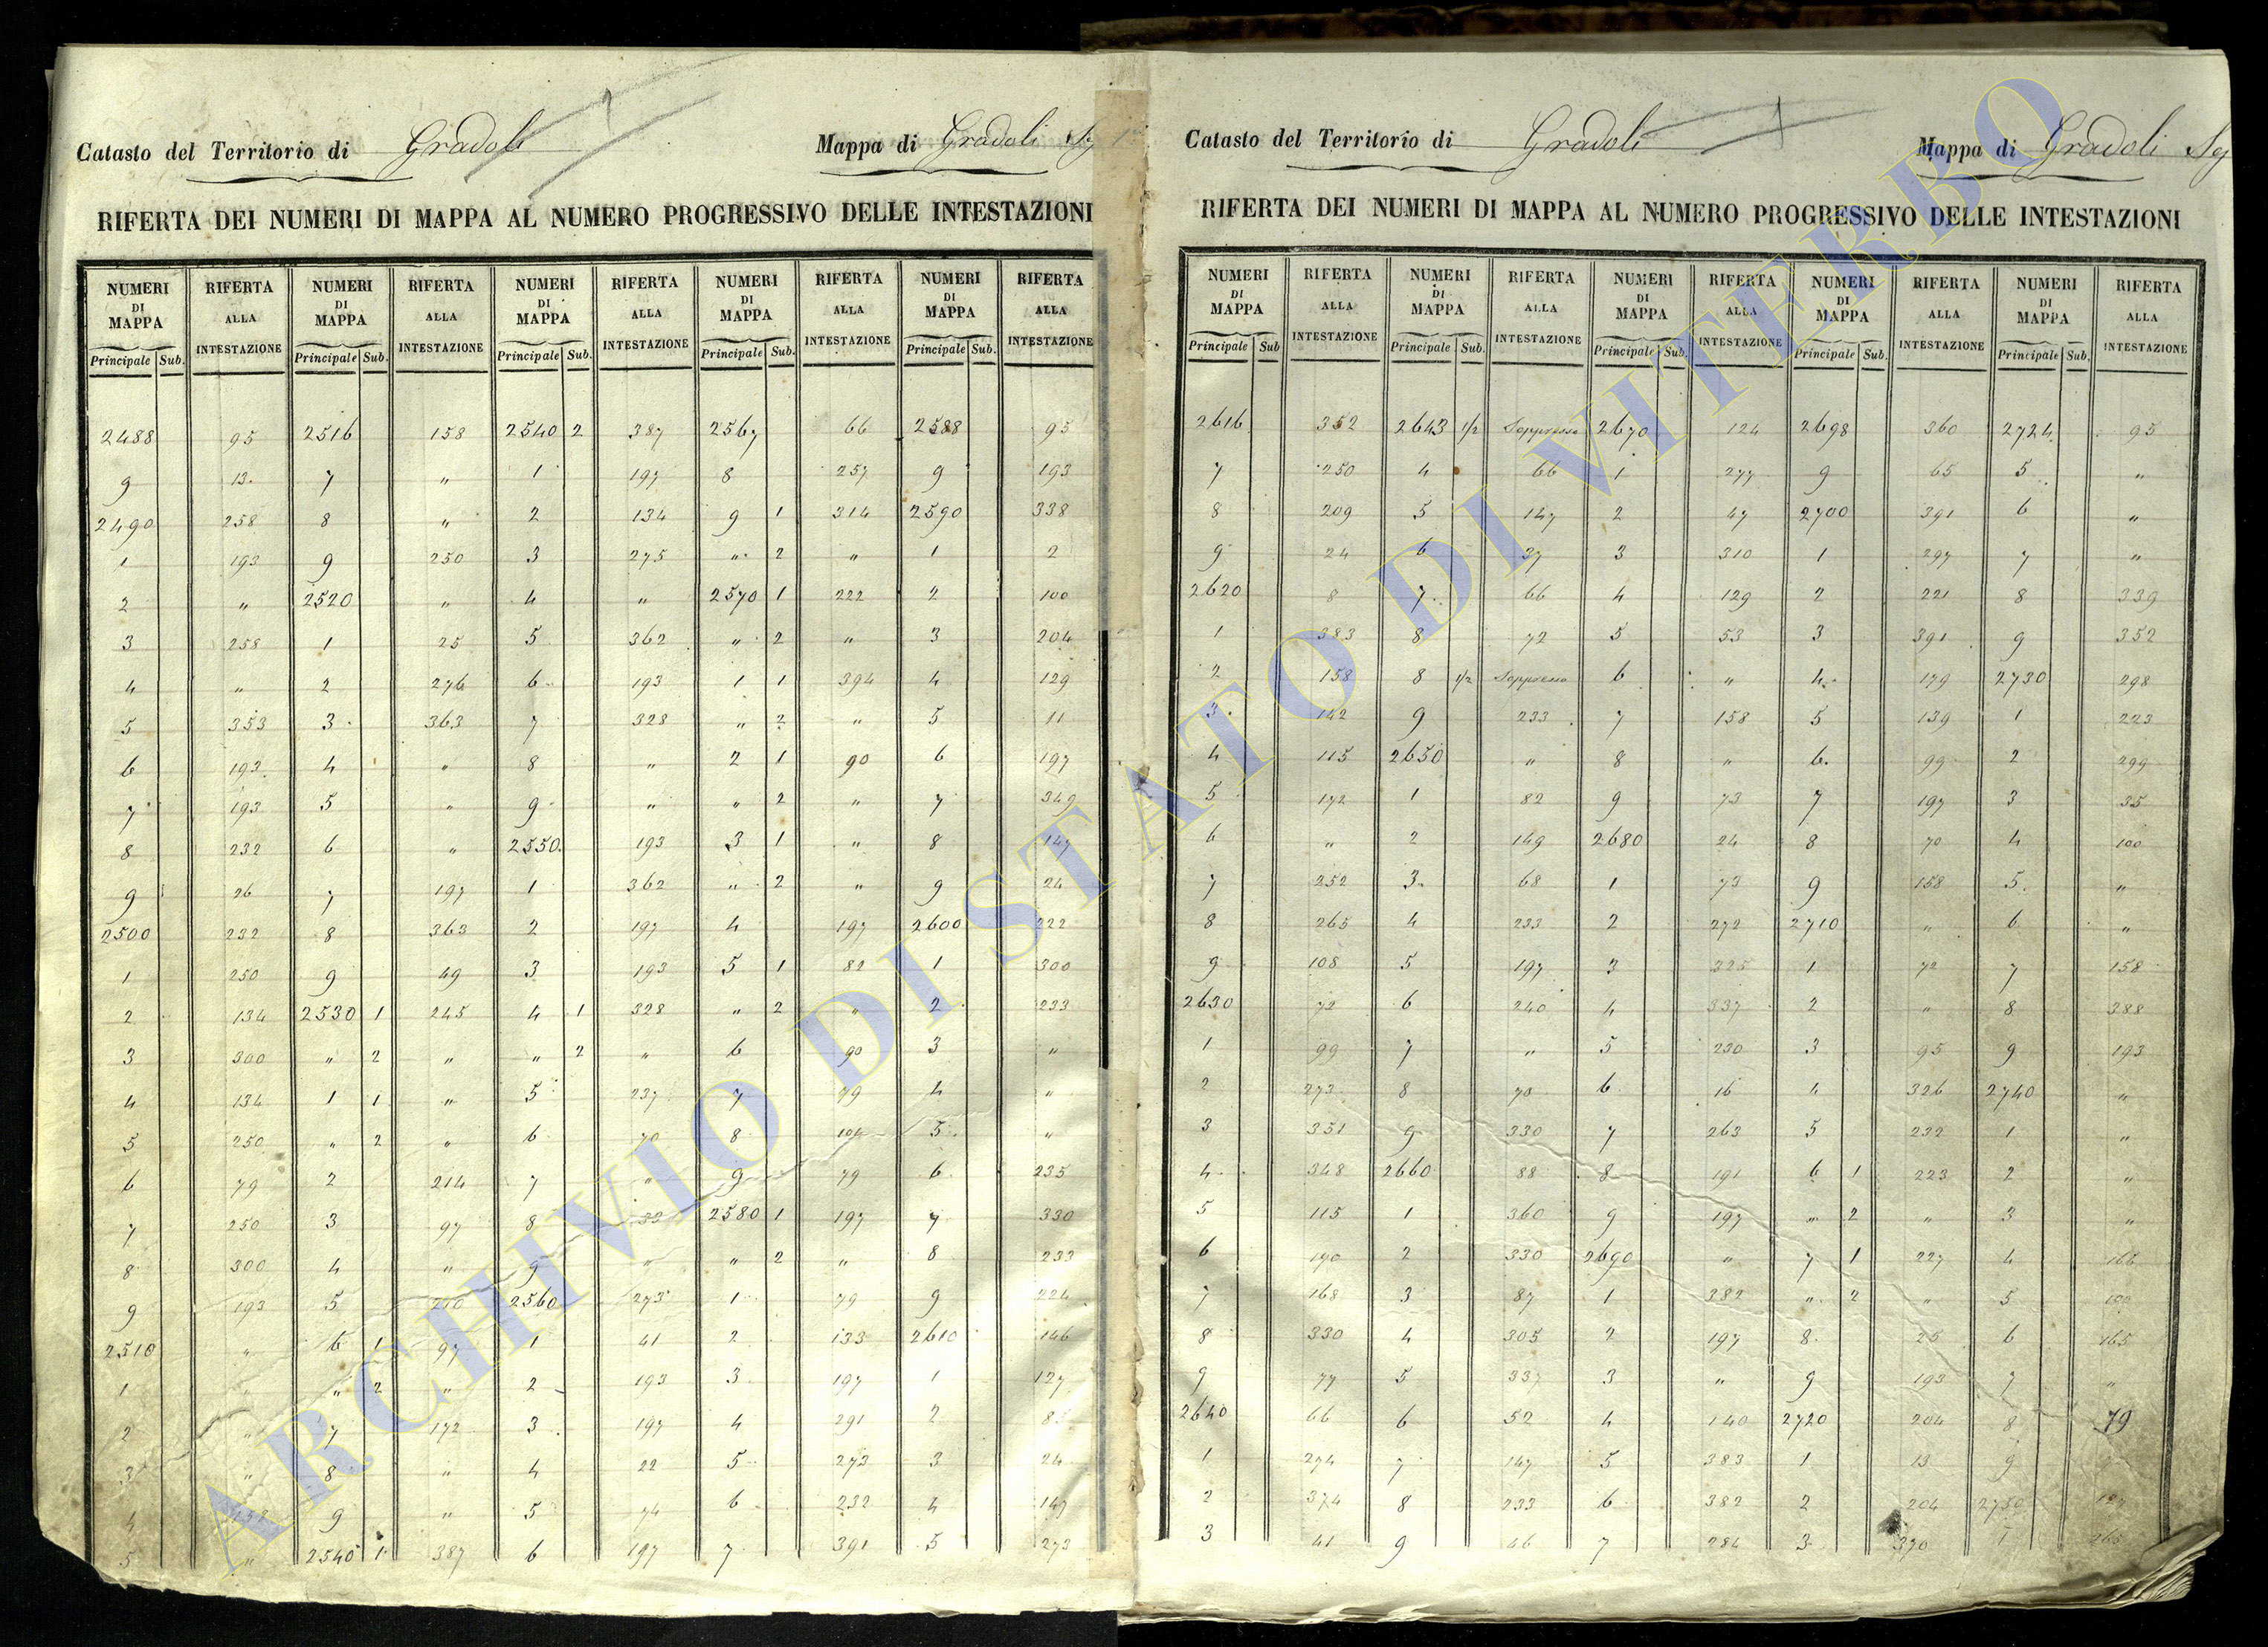 Catasto del Territorio di Gradoli Mappa di Gradoli
RIFERTA DEI NUMERI DI MAPPA AL NUMERO PROGRESSIVO DELLE INTESTAZIONI
NUMERI DI MAPPA RIFERTA ALLA INTESTAZIONE NUMERI DI MAPPA RIFERTA ALLA INTESTAZIONE NUMERI DI MAPPA RIFERTA ALLA INTESTAZIONE NUMERI DI MAPPA RIFERTA ALLA INTESTAZIONE NUMERI DI MAPPA RIFERTA ALLA INTESTAZIONE
Principale Sub. Principale Sub. Principale Sub. Principale Sub. Principale Sub.
2488 95 2516 158 2540 2 387 2567 66 2588 95
9 13 7 " 1 197 8 257 9 193
2490 258 8 " 2 134 9 1 314 2590 338
1 193 9 250 3 275 " 2 " 1 2
2 " 2520 " 4 " 2570 1 222 2 100
3 258 1 25 5 362 " 2 " 3 204
4 " 2 276 6 193 1 1 394 4 129
5 353 3 363 7 328 " 2 " 5 11
6 193 4 " 8 " 2 1 90 6 197
7 193 5 " 9 " " 2 " 7 349
8 232 6 " 2550 193 3 1 " 8 147
9 26 7 197 1 362 " 2 " 9 24
2500 232 8 363 2 197 4 197 2600 222
1 250 9 49 3 193 5 1 82 1 300
2 134 2530 1 245 4 1 328 " 2 " 2 233
3 300 " 2 " " 2 " 6 90 3 "
4 134 1 1 " 5 237 7 79 4 "
5 250 " 2 " 6 70 8 104 5 "
6 79 2 214 7 " 9 79 6 235
7 250 3 97 8 32 2580 1 197 7 330
8 300 4 " 9 " " 2 " 8 233
9 193 5 210 2560 273 1 79 9 224
2510 " 6 1 97 1 41 2 133 2610 146
1 " " 2 " 2 193 3 197 1 127
2 " 7 172 3 197 4 291 2
3 " 8 " 4 22 5 273 3 24
4 9 " 5 74 6 232 4 147
5 " 2540 1 387 6 197 7 391 5 273
Catasto del Territorio di Gradoli Mappa di Gradoli
RIFERTA DEI NUMERI DI MAPPA AL NUMERO PROGRESSIVO DELLE INTESTAZIONI
NUMERI DI MAPPA RIFERTA ALLA INTESTAZIONE NUMERI DI MAPPA RIFERTA ALLA INTESTAZIONE NUMERI DI MAPPA RIFERTA ALLA INTESTAZIONE NUMERI DI MAPPA RIFERTA ALLA INTESTAZIONE NUMERI DI MAPPA RIFERTA ALLA INTESTAZIONE
Principale Sub Principale Sub. Principale Sub. Principale Sub. Principale Sub.
2616 352 2643 1/2 Soppresso 2670 124 2698 360 2724 95
7 250 4 66 1 277 9 65 5 "
8 209 5 147 2 47 2700 391 6 "
9 24 6 37 3 310 1 297 7 "
2620 8 7 66 4 129 2 221 8 339
1 383 8 72 5 53 3 391 9 352
2 158 8 1/2 Soppresso 6 " 4 179 2730 298
3 142 9 233 7 158 5 139 1 223
4 115 2650 " 8 " 6 99 2 299
5 172 1 82 9 73 7 197 3 35
6 " 2 149 2680 24 8 70 4 100
7 252 3 68 1 73 9 158 5 "
8 265 4 233 2 272 2710 " 6 "
9 108 5 197 3 325 1 72 7 158
2630 72 6 240 4 337 2 " 8 388
1 99 7 " 5 230 3 95 9 193
2 273 8 70 6 16 4 326 2740 "
3 351 9 330 7 263 5 232 1 "
4 348 2660 88 8 191 6 1 223 2 "
5 115 1 360 9 197 " 2 " 3 "
6 190 2 330 2690 " 7 1 227 4 166
7 168 3 87 1 382 " 2 " 5
8 330 4 305 2 197 8 25 6 165
9 77 5 337 3 " 9 193 7 "
2640 66 6 52 4 140 2720 204 8 79
1 274 7 147 5 383 1 13 9
2 374 8 233 6 382 2 204 2750
3 41 9 46 7 284 3 370 1
ARCHIVIO DI STATO DI VITERBO